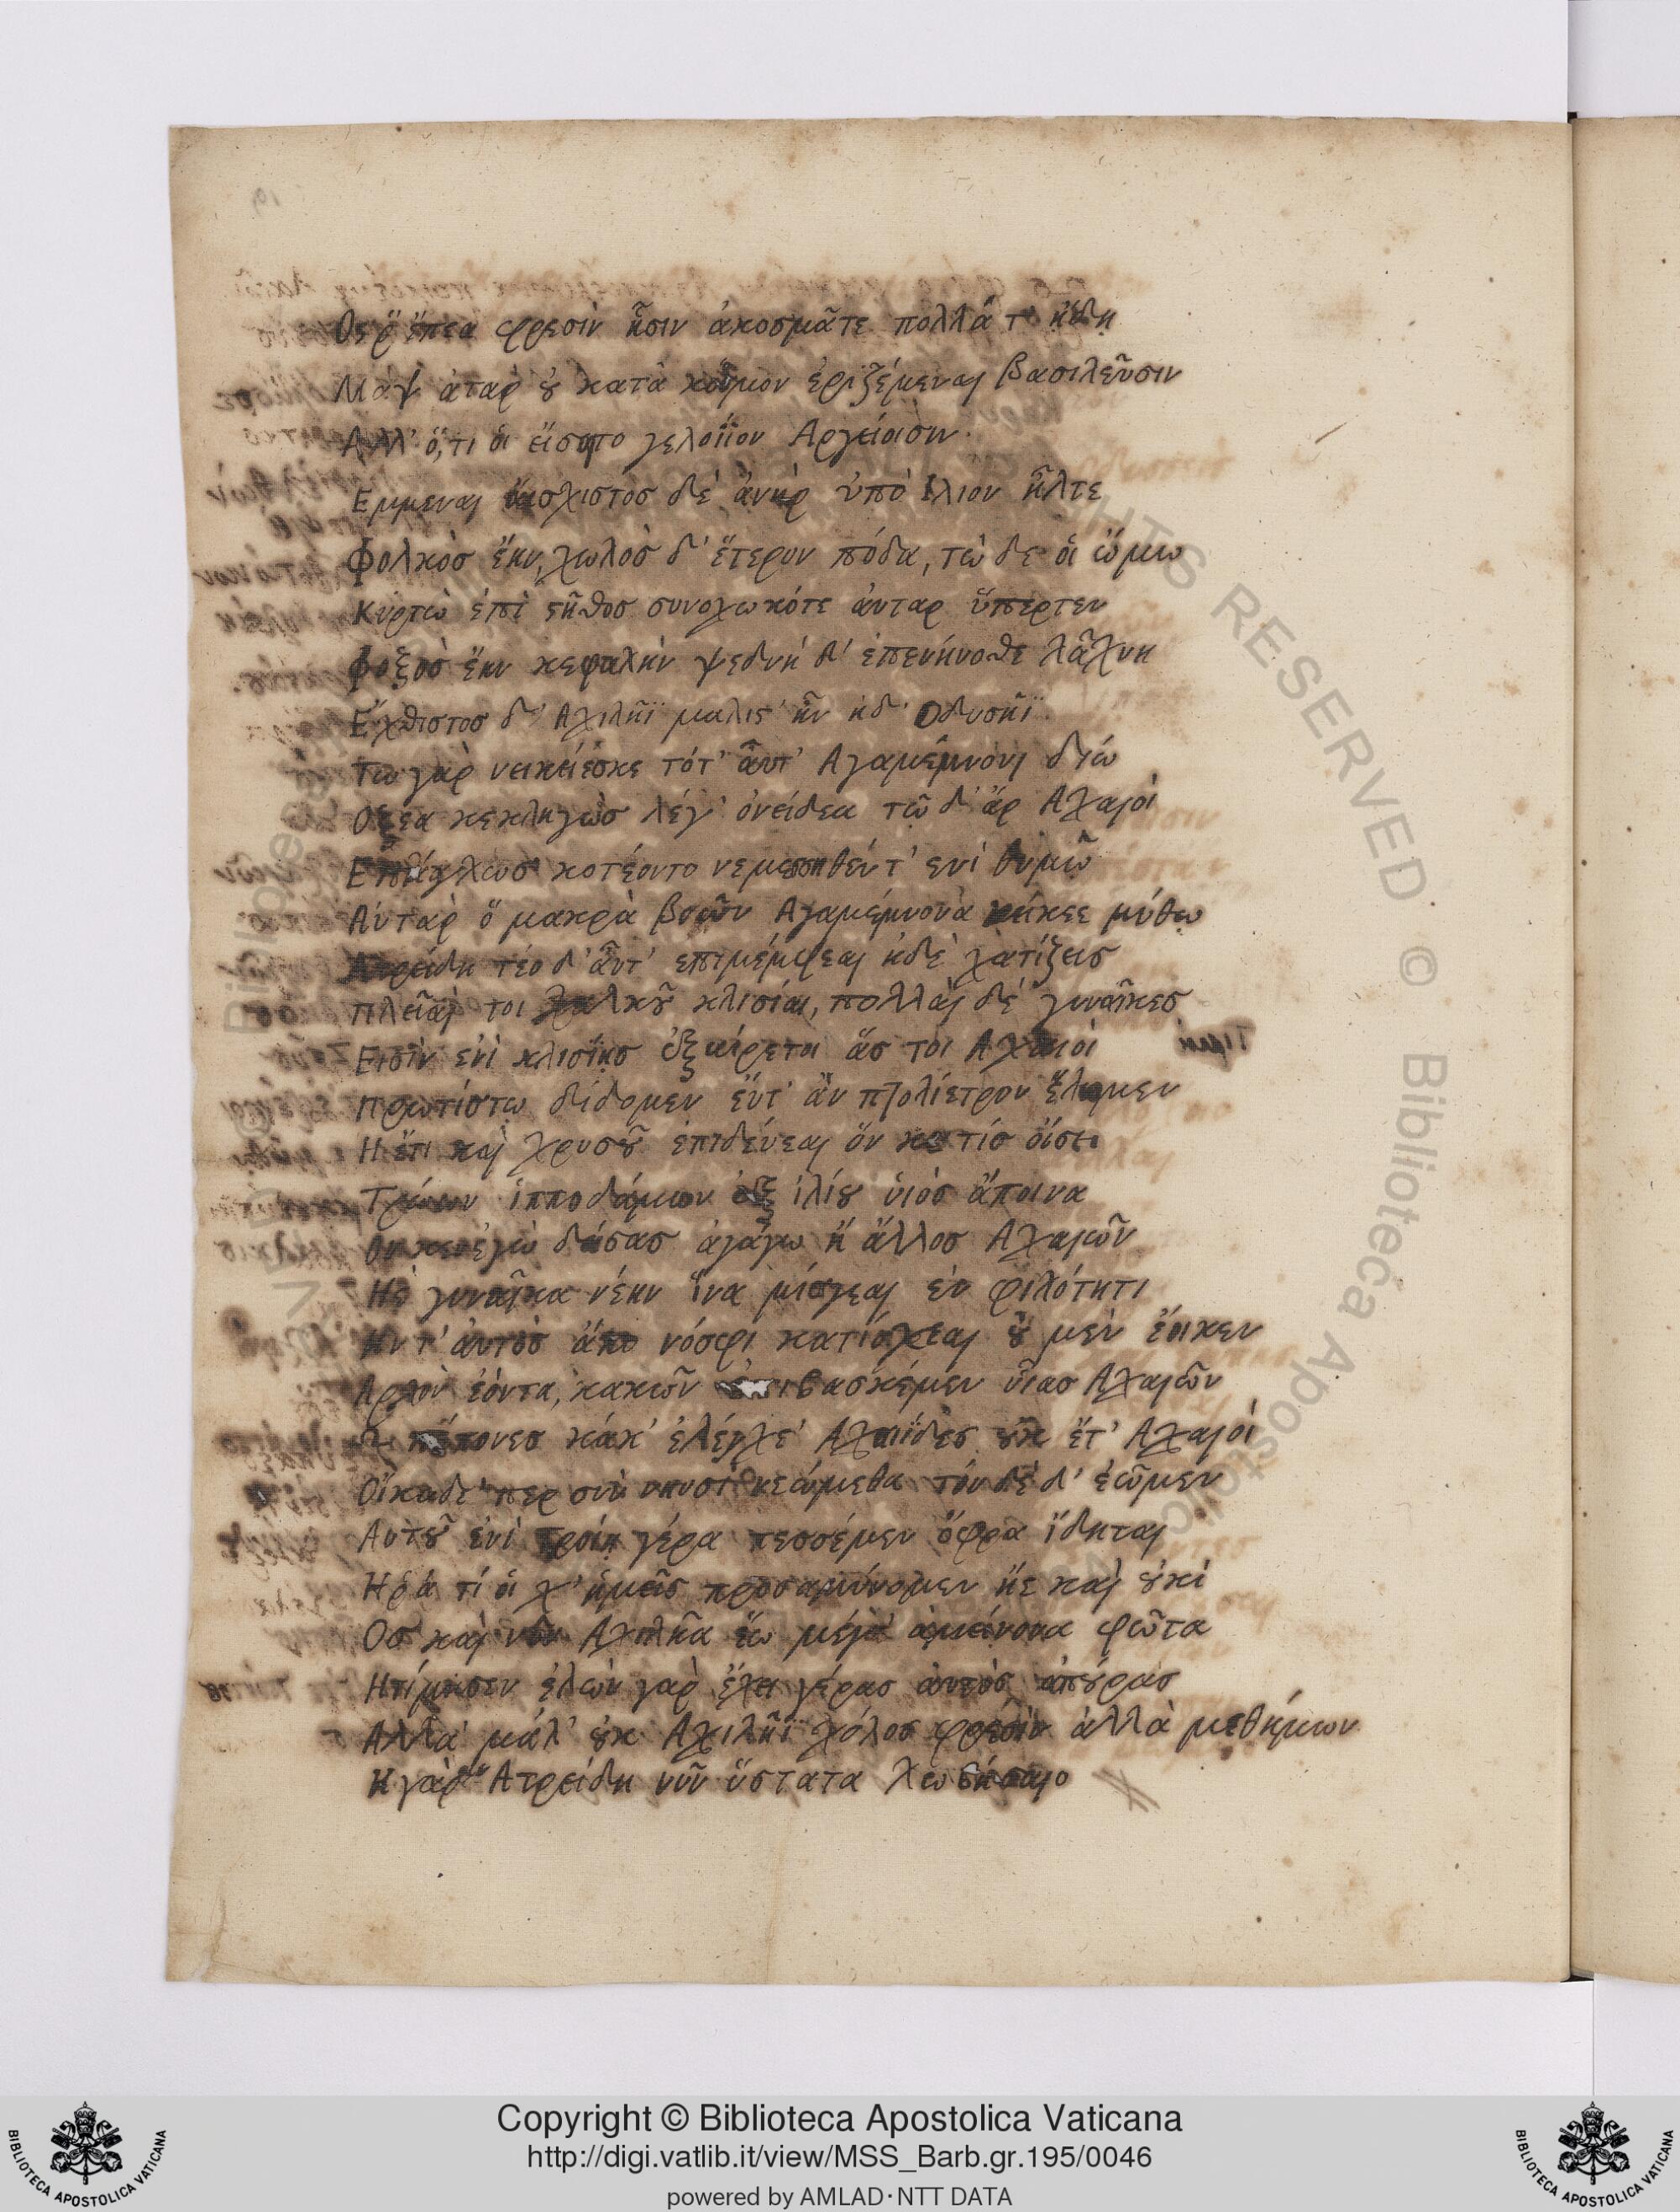 Οσ ῤ ἔπεα φρεσὶν ἧσιν ἀκοσμᾶτε πολλά τ' ᾔδη
Μὰψ ἀτὰρ ȣ κατὰ κόσμον ἐριζέμεναι βασιλεῦσιν
Αλλ' ὅ,τι ὁι ἔισαιτο γελοίϊον Αργείοισιν.
Εμμεναι ἄισχιστοσ δὲ ἀνὴρ ὑπὸ ίλιον ἦλτε
Φολκὸσ ἔην, χωλὸσ δ' ἕτερον πόδα, τὼ δε ὁι ὤμω
Κυρτὼ ἐπὶ ϛῆθοσ συνοχωκότε ἀυταρ ὕπερτεν
Φοξὸσ ἔην κεφαλὴν ψεδνὴ δ' ἐπενήνοθε λάχνη
Εχθιστοσ δ' Αχιλῆϊ μαλιϛ' ἦν ἠδ' Οδυσῆϊ.
Τω γὰρ νεικείεσκε τότ' ἆυτ' Αγαμέμνονι δίω
Οξεα κεκληγὼσ λέγ' ὀνείδεα τῶ δ' ἄρ Αχαιὸι
Εκπάγλωσ κοτέοντο νεμεσσηθέν τ' ενὶ θυμῶ
Αυταρ ὅ μακρὰ βοῶν Αγαμέμνονα νείκεε μύθῳ
Ατρείδη τέο δ' ἆυτ' επιμέμφεαι ἠδὲ χατίζεισ
Πλεῖαι τοι χαλκȣ κλισίαι, πολλὰι δὲ γυνᾶικεσ
Εισὶν ἐνὶ κλισίῃσ ἐξαίρετοι ἅσ τοι Αχαιὸι
Πρωτίστῳ δίδομεν ἔυτ' ἂν πτολίετρον ἕλωμεν
Η ἔτι καὶ χρυσȣ ἐπιδέυεαι ὅν κε τίσ ὄισει
Τρώων ἱπποδάμων ἐξ ιλίȣ ὑιὸσ ἄποινα
Ον κεν ἐγὼ δήσασ ἀγάγω ἢ ἄλλοσ Αχαιῶν
Ηὲ γυνᾶικα νέην ἵνα μίσγεαι ἐν φιλότητι
Ην τ' ἀυτὸσ ἄπο νόσφι κατίσχεαι ȣ μὲν ἔοικεν
Αρχὸν ἐόντα, κακῶν ἐπιβασκέμεν ὗιασ Αχαιῶν
Ω πέπονεσ κάκ' ἐλέγχε' Αχαιΐδεσ ȣκ ἔτ' Αχαιὸι
Οίκαδέ περ σὺν νηυσὶ νεώμεθα τόνδε δ' ἐῶμεν
Αυτȣ ἐνὶ τροίῃ γέρα πεσσέμεν ὄφρα ἴδηται
Η ῥά τί ὁι χ' ἡμεῖσ προσαμύνομεν ἦε καὶ ȣκὶ
Οσ καὶ νῦν Αχιλῆα ἕω μέγ' ἀμείνονα φῶτα
Ητίμησεν ἑλὼν γὰρ ἔχει γέρασ ἀυτὸσ ἀπȣρασ
Αλλὰ μάλ' ȣκ Αχιλῆϊ χόλοσ φρεσὶν ἀλλὰ μεθήμων
Η γὰρ ἂν Ατρείδη νῦν ὕστατα λωβήσαιο
Copyright © Biblioteca Apostolica Vaticana
http://digi.vatlib.it/view/MSS_Barb.gr.195/0046
powered by AMLAD·NTT DATA